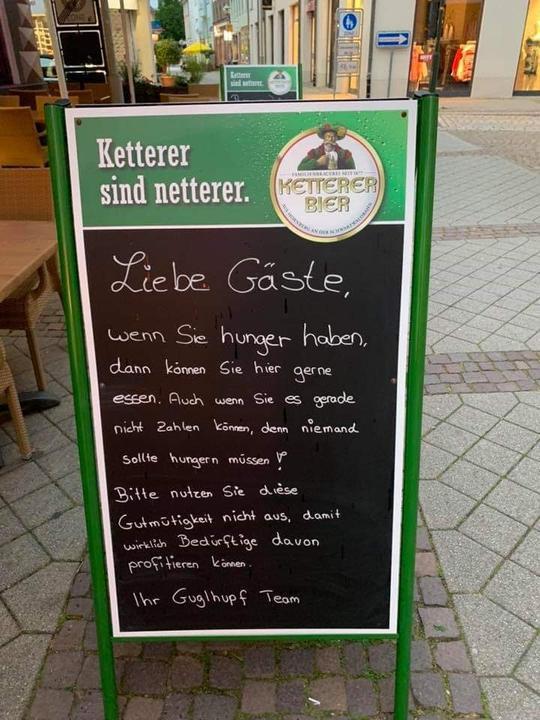 Ketterer
sind netterer.
Ketterer
sind netterer.
FAMILIENBRAUEREI SEIT 1877
KETTERER
BIER
AUS HORNBERG AN DER SCHWARZWALDBAHN
Liebe Gäste,
wenn Sie hunger haben,
dann können Sie hier gerne
essen. Auch wenn Sie es gerade
nicht Zahlen können, denn niemand
sollte hungern müssen!
Bitte nutzen Sie diese
Gutmütigkeit nicht aus, damit
wirklich Bedürftige davon
profitieren können.
Ihr Guglhupf Team